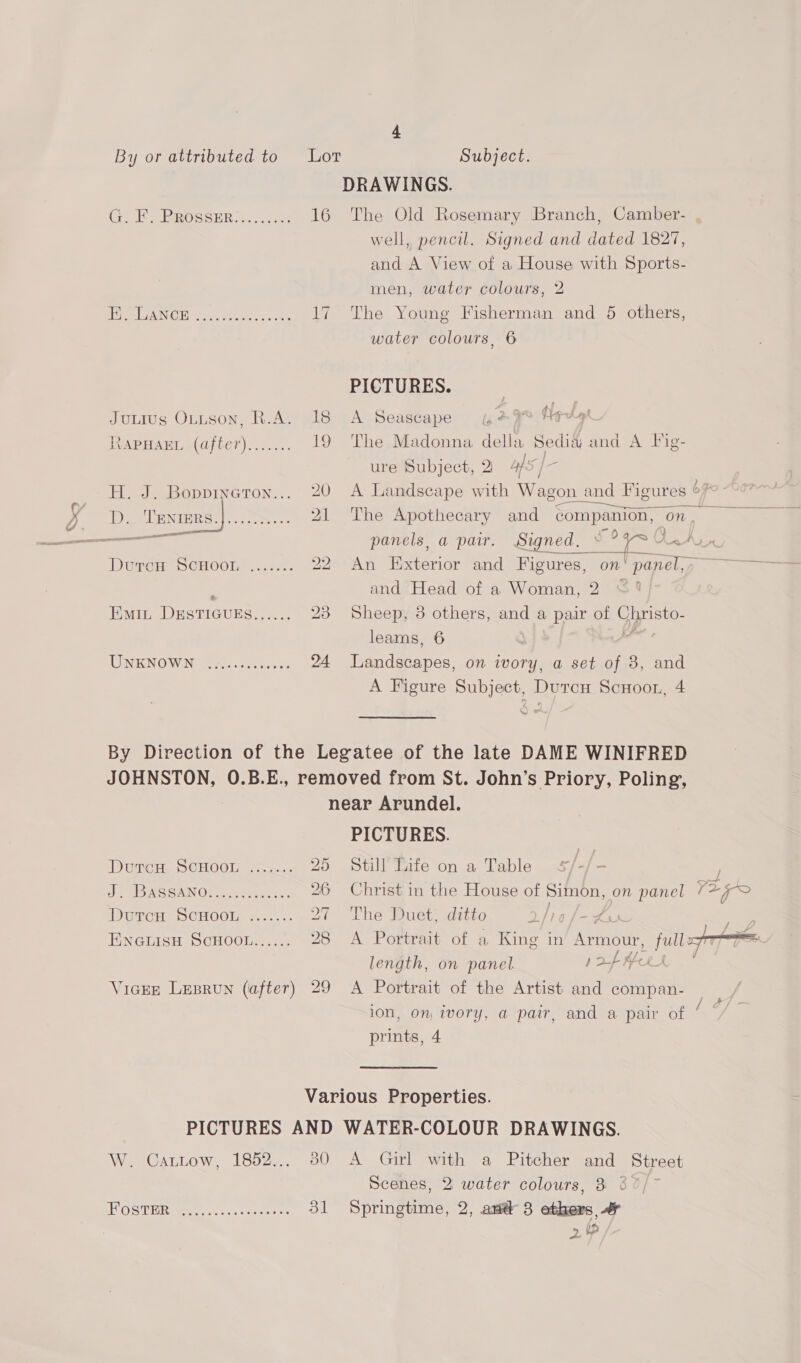 4
By or attributed to Lot Subject.
DRAWINGS.
G. F. Prosser......... 16 The Old Rosemary Branch, Camber-
well, pencil. Signed and dated 1827,
and A View of a House with Sports-
men, water colours, 2
E. Lance ............... 17 The Young Fisherman and 5 others,
water colours, 6
PICTURES.
Julius Ollson, R.A. 18 A Seascape
Raphael (after)....... 19 The Madonna della Sedia and A Fig-
ure Subject, 2 45/-
H. J. Boddington... 20 A Landscape with Wagon and Figures
D. Teniers............ 21 The Apothecary and companion, on
panels, a pair. Signed.
Dutch School ....... 22 An Exterior and Figures, on panel,
and Head of a Woman, 2
Emil Destigues...... 23 Sheep, 3 others, and a pair of Christo-
leams, 6
Unknown ............ 24 Landscapes, on ivory, a set of 3, and
A Figure Subject, Dutch School, 4
By Direction of the Legatee of the late DAME WINIFRED
JOHNSTON, O.B.E., removed from St. John's Priory, Poling,
near Arundel.
PICTURES.
Dutch School ....... 25 Still Life on a Table 5/-/-
J. Bassano............ 26 Christ in the House of Simon, on panel
Dutch School ....... 27 The Duet, ditto 2/10/-
English School...... 28 A Portrait of a King in Armour, full
length, on panel
Vigee Lebrun (after) 29 A Portrait of the Artist and compan-
ion, on ivory, a pair, and a pair of
prints, 4
Various Properties.
PICTURES AND WATER-COLOUR DRAWINGS.
W. Callow, 1852... 30 A Girl with a Pitcher and Street
Scenes, 2 water colours, 3
Foster .................. 31 Springtime, 2, and 3 others,